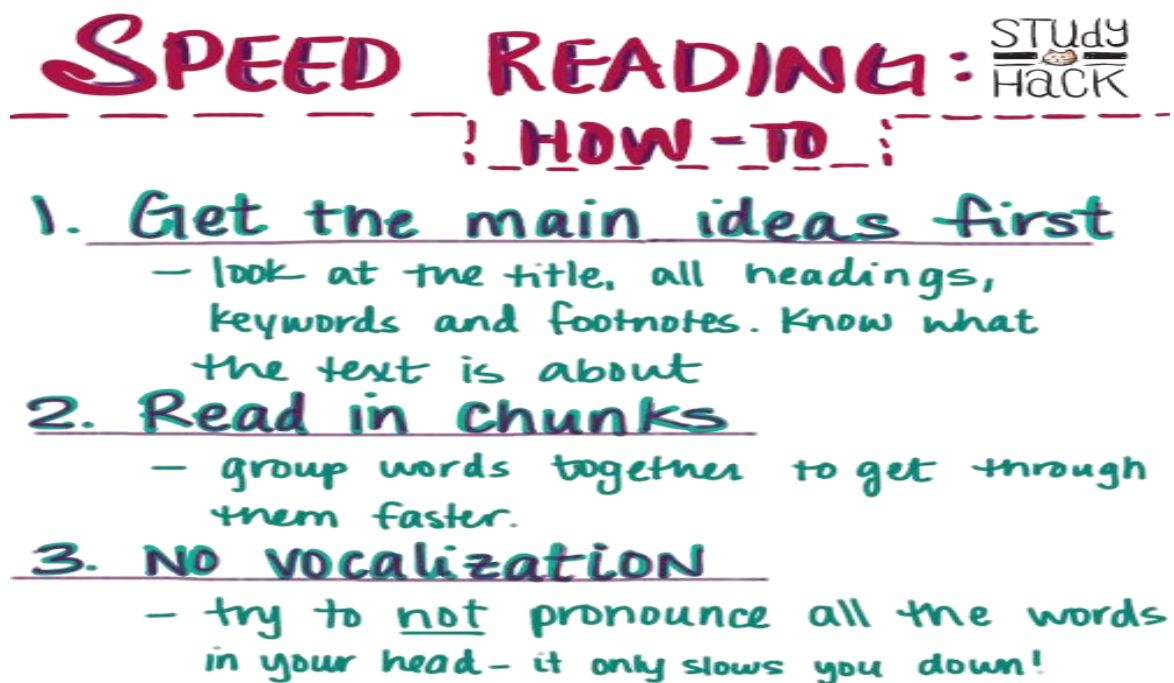 SPEED READING:
STUdY
HaCK
HOW-TO
1. Get the main ideas first
- look at the title, all headings,
keywords and footnotes. Know what
the text is about
2. Read in chunks
- group words together to get through
them faster.
3. No vocalization
- try to not pronounce all the words
in your head - it only slows you down!